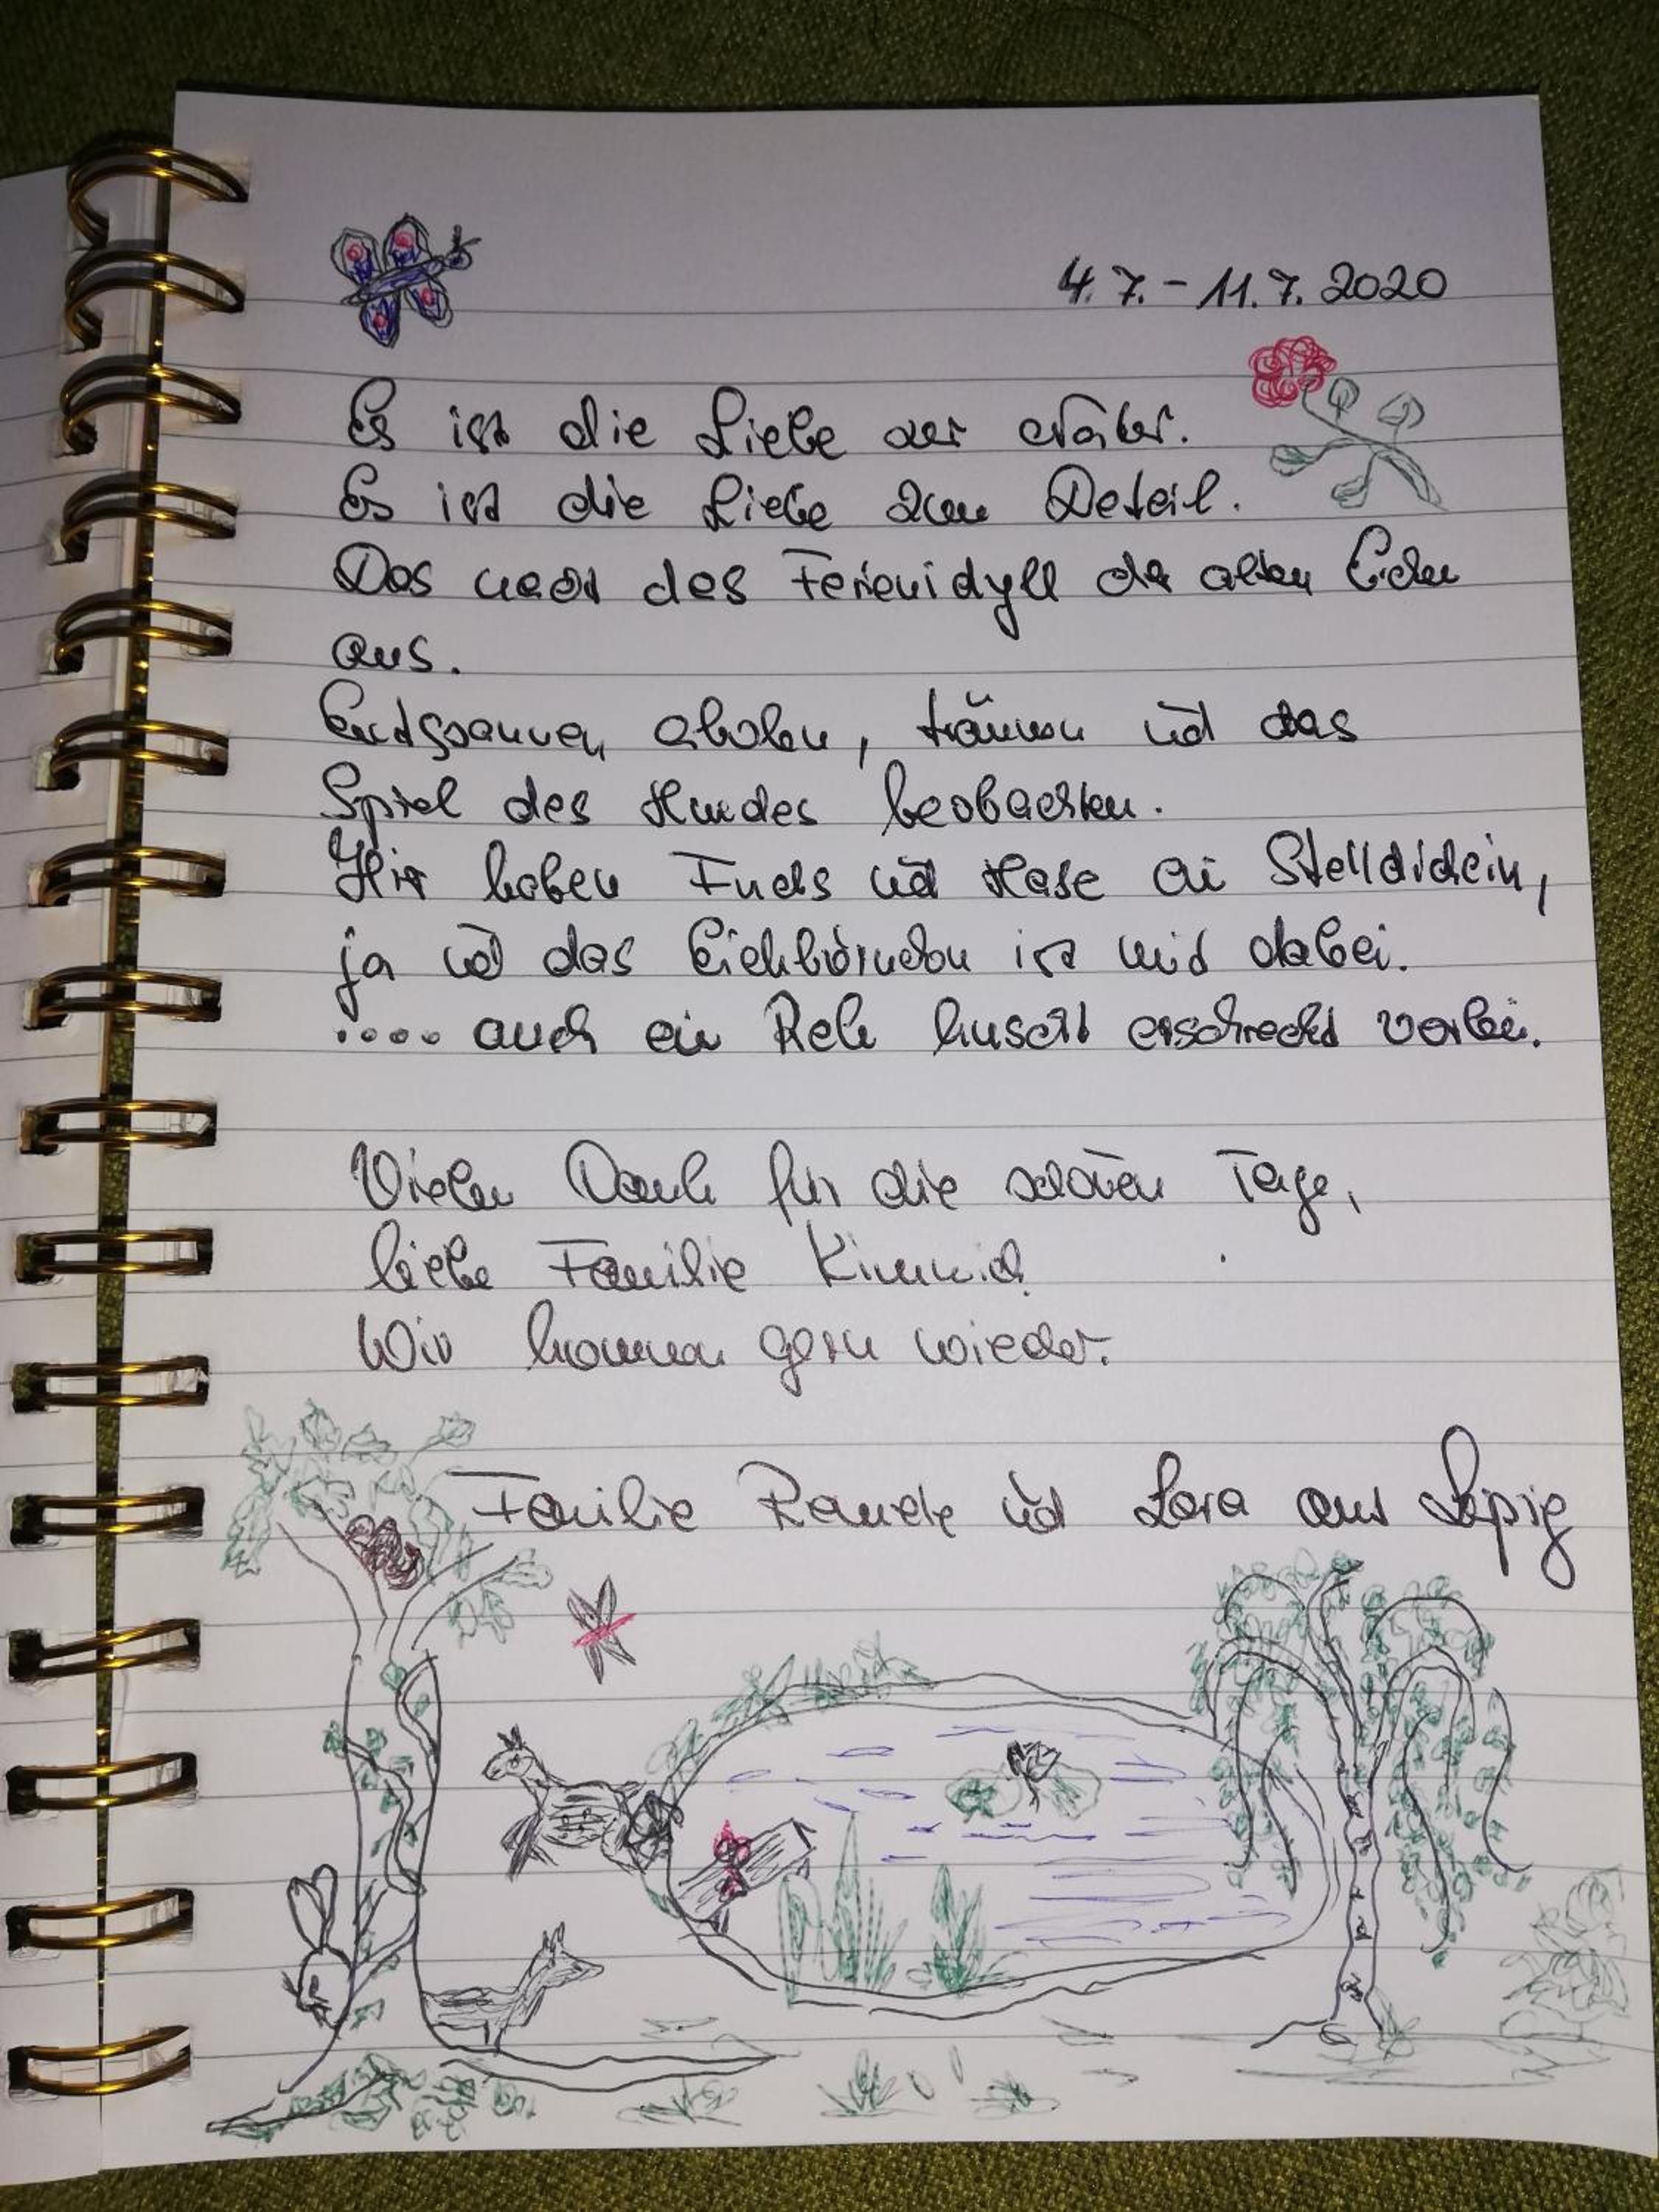 4.7. - 11.7. 2020
Es ist die Liebe zur Natur.
Es ist die Liebe zum Detail.
Das macht das Ferienidyll der alten Eichen
aus.
Entspannen, abholen, träumen und das
Spiel des Hundes beobachten.
Hier haben Fuchs und Hase ein Stelldichein,
ja und das Eichhörnchen ist mit dabei.
.... auch ein Reh huscht erschreckt vorbei.
Vielen Dank für die schönen Tage,
liebe Familie
Wir kommen gern wieder.
Familie und Lara aus Leipzig